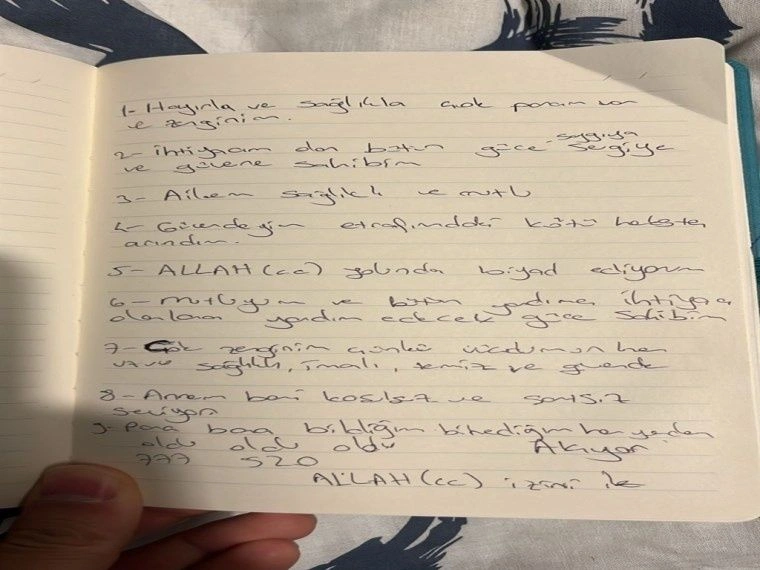 1- Hayırla ve sağlıkla çok param var
ve zenginim.
2- ihtiyacım olan bütün güce saygıya sevgiye
ve güvene sahibim
3- Ailem sağlıklı ve mutlu
4- Güvendeyim etrafımdaki kötü
arındım.
5- ALLAH (cc) yolunda ediyorum
6- mutluyum ve bütün yardıma ihtiyacı
olanlara yardım edecek güce sahibim
7- Çok zenginim çünkü vücudumun her
uzvu sağlıklı, temiz ve güvende
8- Annem beni koşulsuz ve şartsız
seviyor
9- Para bana bildiğim bilmediğim her yerden
oldu oldu oldu Akıyor
777 520
ALLAH (cc) izini ile